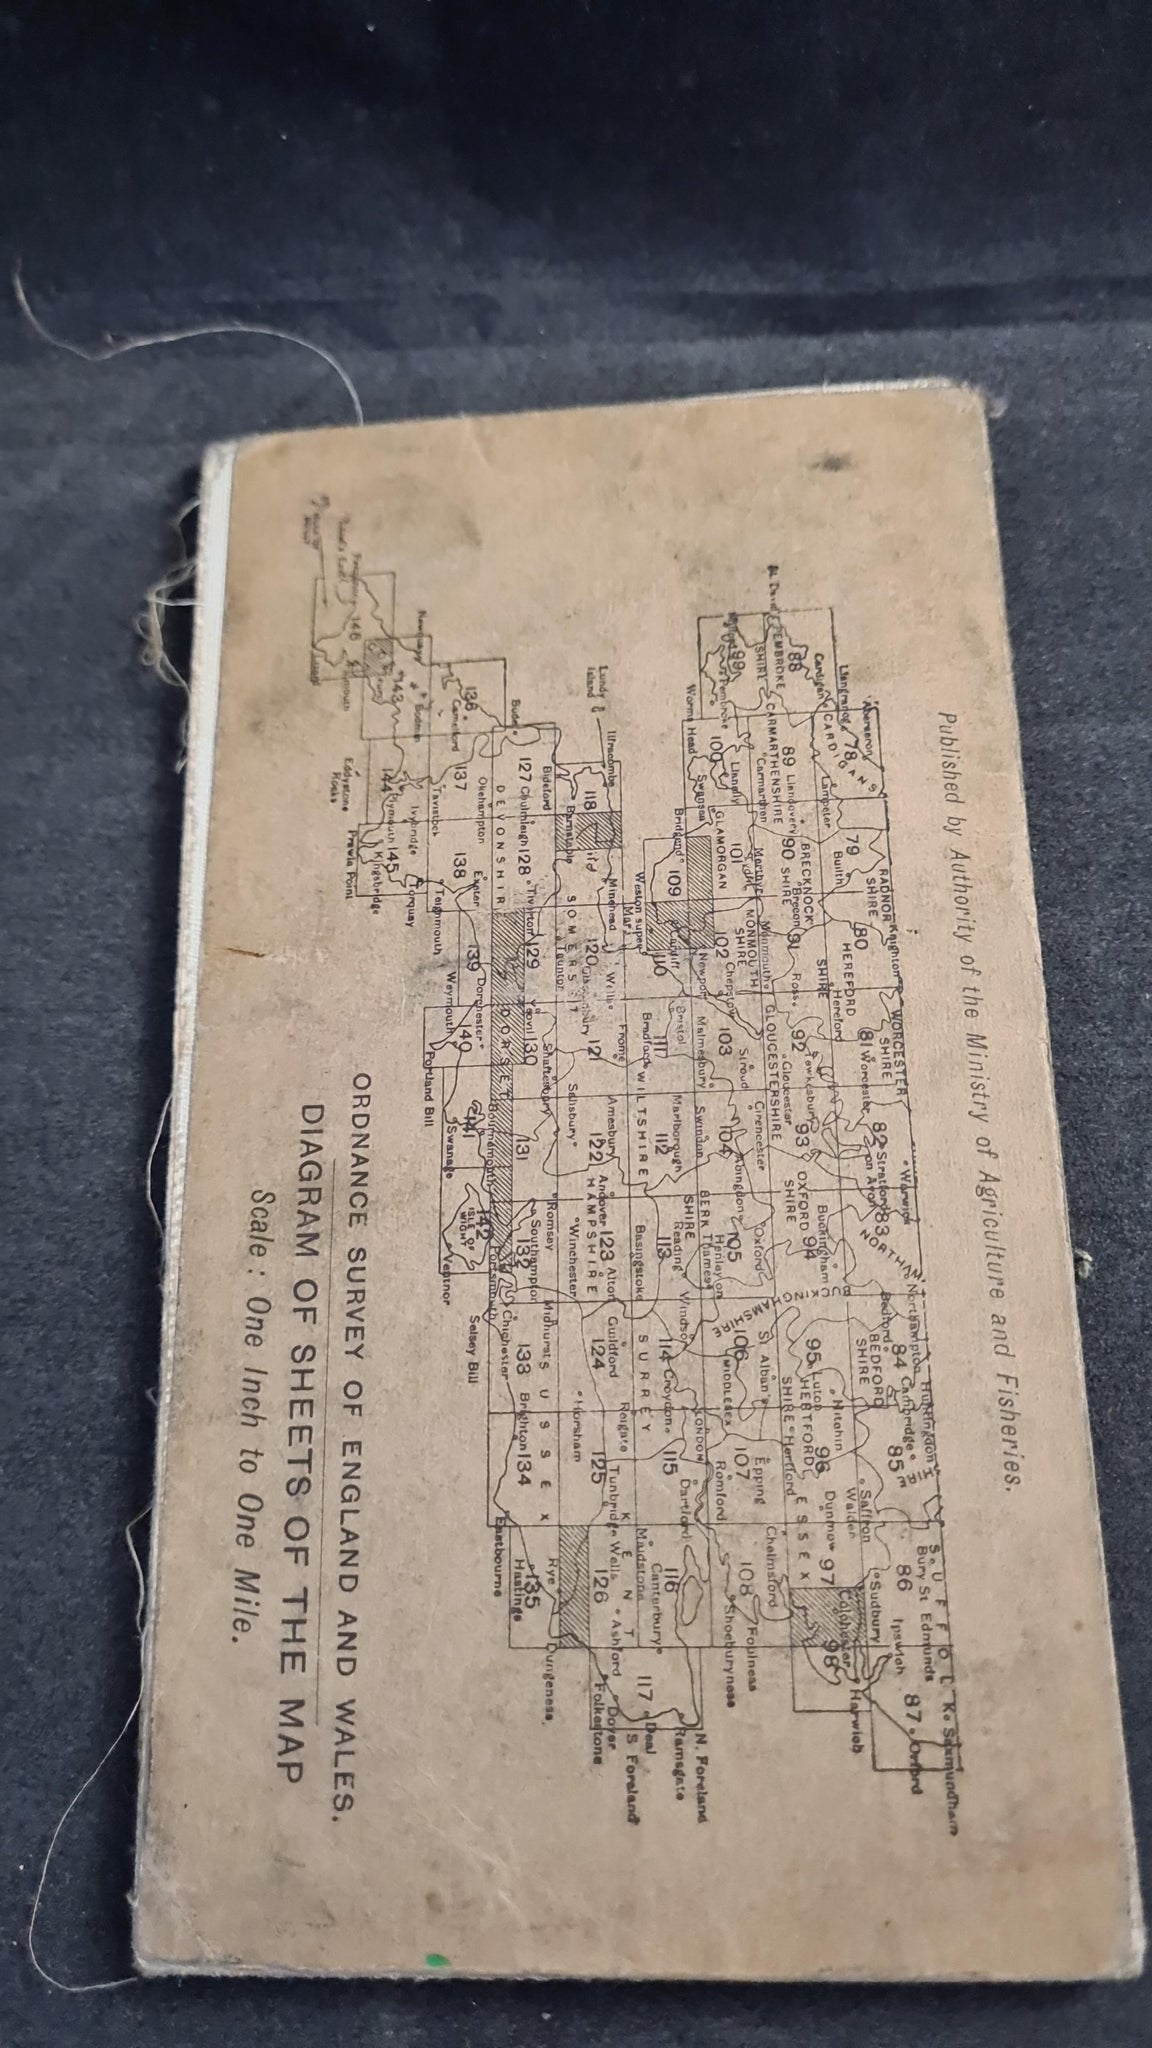 Published by Authority of the Ministry of Agriculture and Fisheries.
Aberaeron
Llangranog
Cardigan
CARDIGANS
78
Lampeter
79
Builth
RADNOR
SHIRE
Knighton
80
HEREFORD
SHIRE
Hereford
WORCESTER
SHIRE
81
Worcester
82
Stratford
on Avon
Warwick
83
NORTHAM
Northampton
Bedford
BEDFORD
SHIRE
84
Cambridge
Huntingdon
85
SUFFOLK
Bury St Edmunds
86
Ipswich
87
Orford
Saxmundham
88
PEMBROKE
SHIRE
CARMARTHENSHIRE
89
Llandovery
Carmarthen
90
BRECKNOCK
SHIRE
Brecon
91
Ross
92
Tewkesbury
Gloucester
GLOUCESTERSHIRE
93
OXFORD
SHIRE
Buckingham
94
95
Luton
Hitchin
HERTFORD
SHIRE
Hertford
96
Saffron
Walden
Dunmow
ESSEX
97
Sudbury
Colchester
98
Harwich
99
Pembroke
100
Llanelly
Swansea
Worms Head
GLAMORGAN
101
Merthyr
Tydfil
MONMOUTH
SHIRE
Monmouth
102
Chepstow
Newport
103
Stroud
Malmesbury
Cirencester
104
Swindon
Abingdon
Oxford
105
BERK
SHIRE
Henley on
Thames
106
St Alban's
MIDDLESEX
LONDON
107
Epping
Romford
Chelmsford
108
Foulness
Shoeburyness
Bridgend
109
Cardiff
110
Weston super
Mar
Bristol
111
Bradford
WILTSHIRE
Marlborough
112
Reading
113
Windsor
114
Croydon
SURREY
115
Dartford
116
Canterbury
Maidstone
KENT
117
Deal
Ramsgate
N. Foreland
S Foreland
Lundy
Island
Ilfracombe
118
Barnstable
Minehead
SOMERSET
120
Wells
Frome
121
Amesbury
Salisbury
122
Andover
HAMPSHIRE
Basingstoke
123
Alton
Winchester
Guildford
124
Reigate
Horsham
125
Tunbridge Wells
126
Ashford
Dover
Folkestone
Bude
Bideford
127
Chulmleigh
128
Tiverton
DEVONSHIR
129
Taunton
Yeovil
130
DORSET
Shaftesbury
131
Bournemouth
Romsey
Southampton
132
Portsmouth
Chichester
Midhurst
SUSSEX
133
Brighton
134
Eastbourne
135
Hastings
Rye
Dungeness
136
Camelford
137
Okehampton
Tavistock
138
Exeter
Teignmouth
139
Dorchester
Weymouth
140
Portland Bill
141
Swanage
142
ISLE OF
WIGHT
Ventnor
Selsey Bill
Newquay
143
Bodmin
144
Plymouth
Ivybridge
145
Kingsbridge
Torquay
Prawle Point
Eddystone
Rocks
146
Falmouth
Lizard
ORDNANCE SURVEY OF ENGLAND AND WALES.
DIAGRAM OF SHEETS OF THE MAP
Scale: One Inch to One Mile.